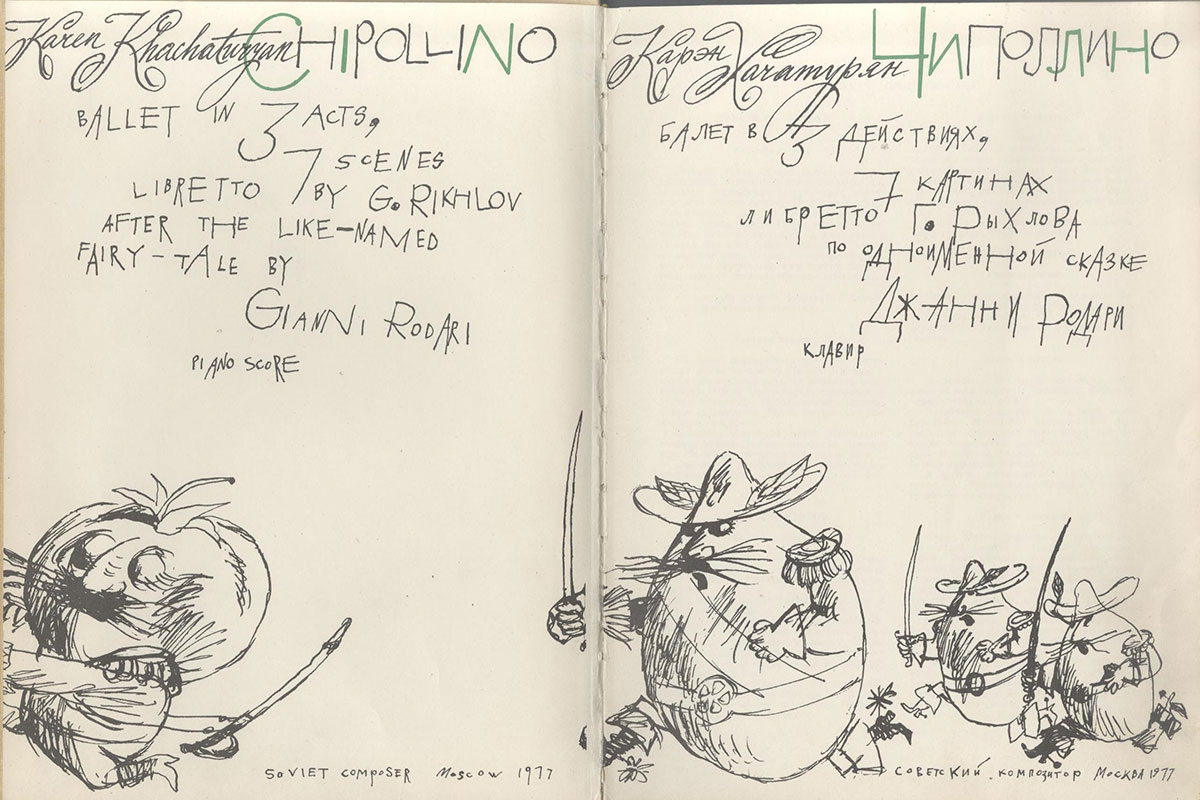 Karen Khachaturyan CHIPOLLINO
BALLET IN 3 ACTS,
7 SCENES
LIBRETTO BY G. RIKHLOV
AFTER THE LIKE-NAMED
FAIRY-TALE BY
GIANNI RODARI
PIANO SCORE
SOVIET COMPOSER MOSCOW 1977
Карэн Хачатурян ЧИПОЛЛИНО
БАЛЕТ В 3 ДЕЙСТВИЯХ,
7 КАРТИНАХ
ЛИБРЕТТО Г. РЫХЛОВА
ПО ОДНОИМЕННОЙ СКАЗКЕ
ДЖАННИ РОДАРИ
КЛАВИР
СОВЕТСКИЙ КОМПОЗИТОР МОСКВА 1977